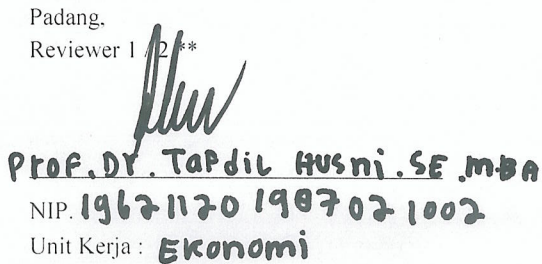 Padang,
Reviewer 1 / 2 **
Prof. Dr. Tafdil Husni. SE. MBA
NIP. 19621120 198702 1002
Unit Kerja : Ekonomi